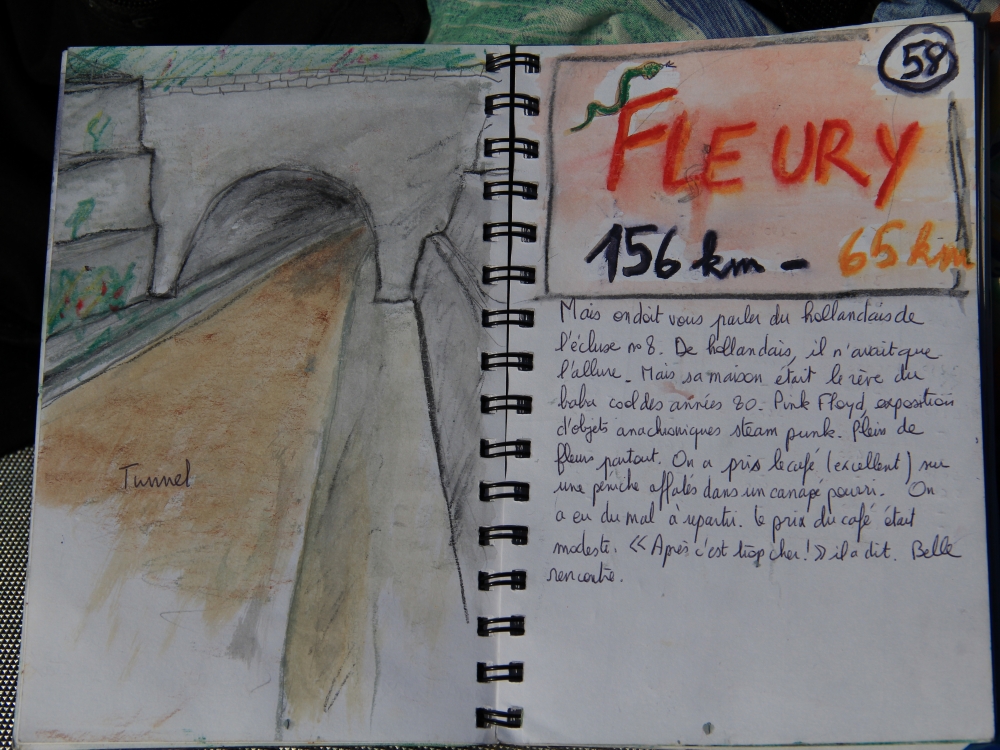 Tunnel
58
FLEURY
156 km - 65 km
Mais on doit vous parler du hollandais de
l'écluse n° 8. De hollandais, il n'avait que
l'allure. Mais sa maison était le rêve du
baba cool des années 80. Pink Floyd, exposition
d'objets anachroniques steam punk. Plein de
fleurs partout. On a pris le café (excellent) sur
une péniche affalés dans un canapé pourri. On
a eu du mal à repartir. Le prix du café était
modeste. « Après c'est trop cher ! » il a dit. Belle
rencontre.